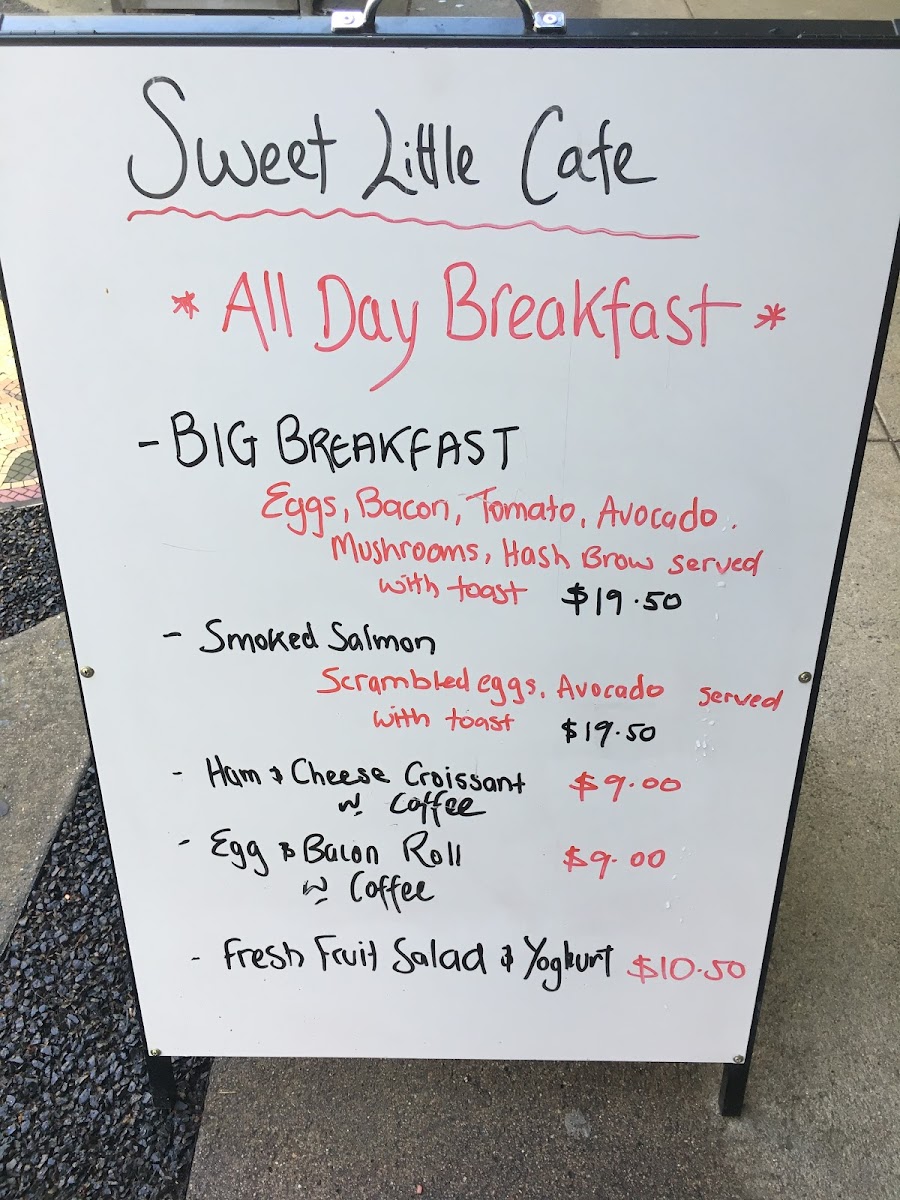 Sweet Little Cafe
* All Day Breakfast *
- BIG BREAKFAST
Eggs, Bacon, Tomato, Avocado.
Mushrooms, Hash Brow served
with toast $19.50
- Smoked Salmon
Scrambled eggs, Avocado served
with toast $19.50
- Ham & Cheese Croissant $9.00
w. Coffee
- Egg & Bacon Roll $9.00
w. Coffee
- Fresh Fruit Salad & Yoghurt $10.50